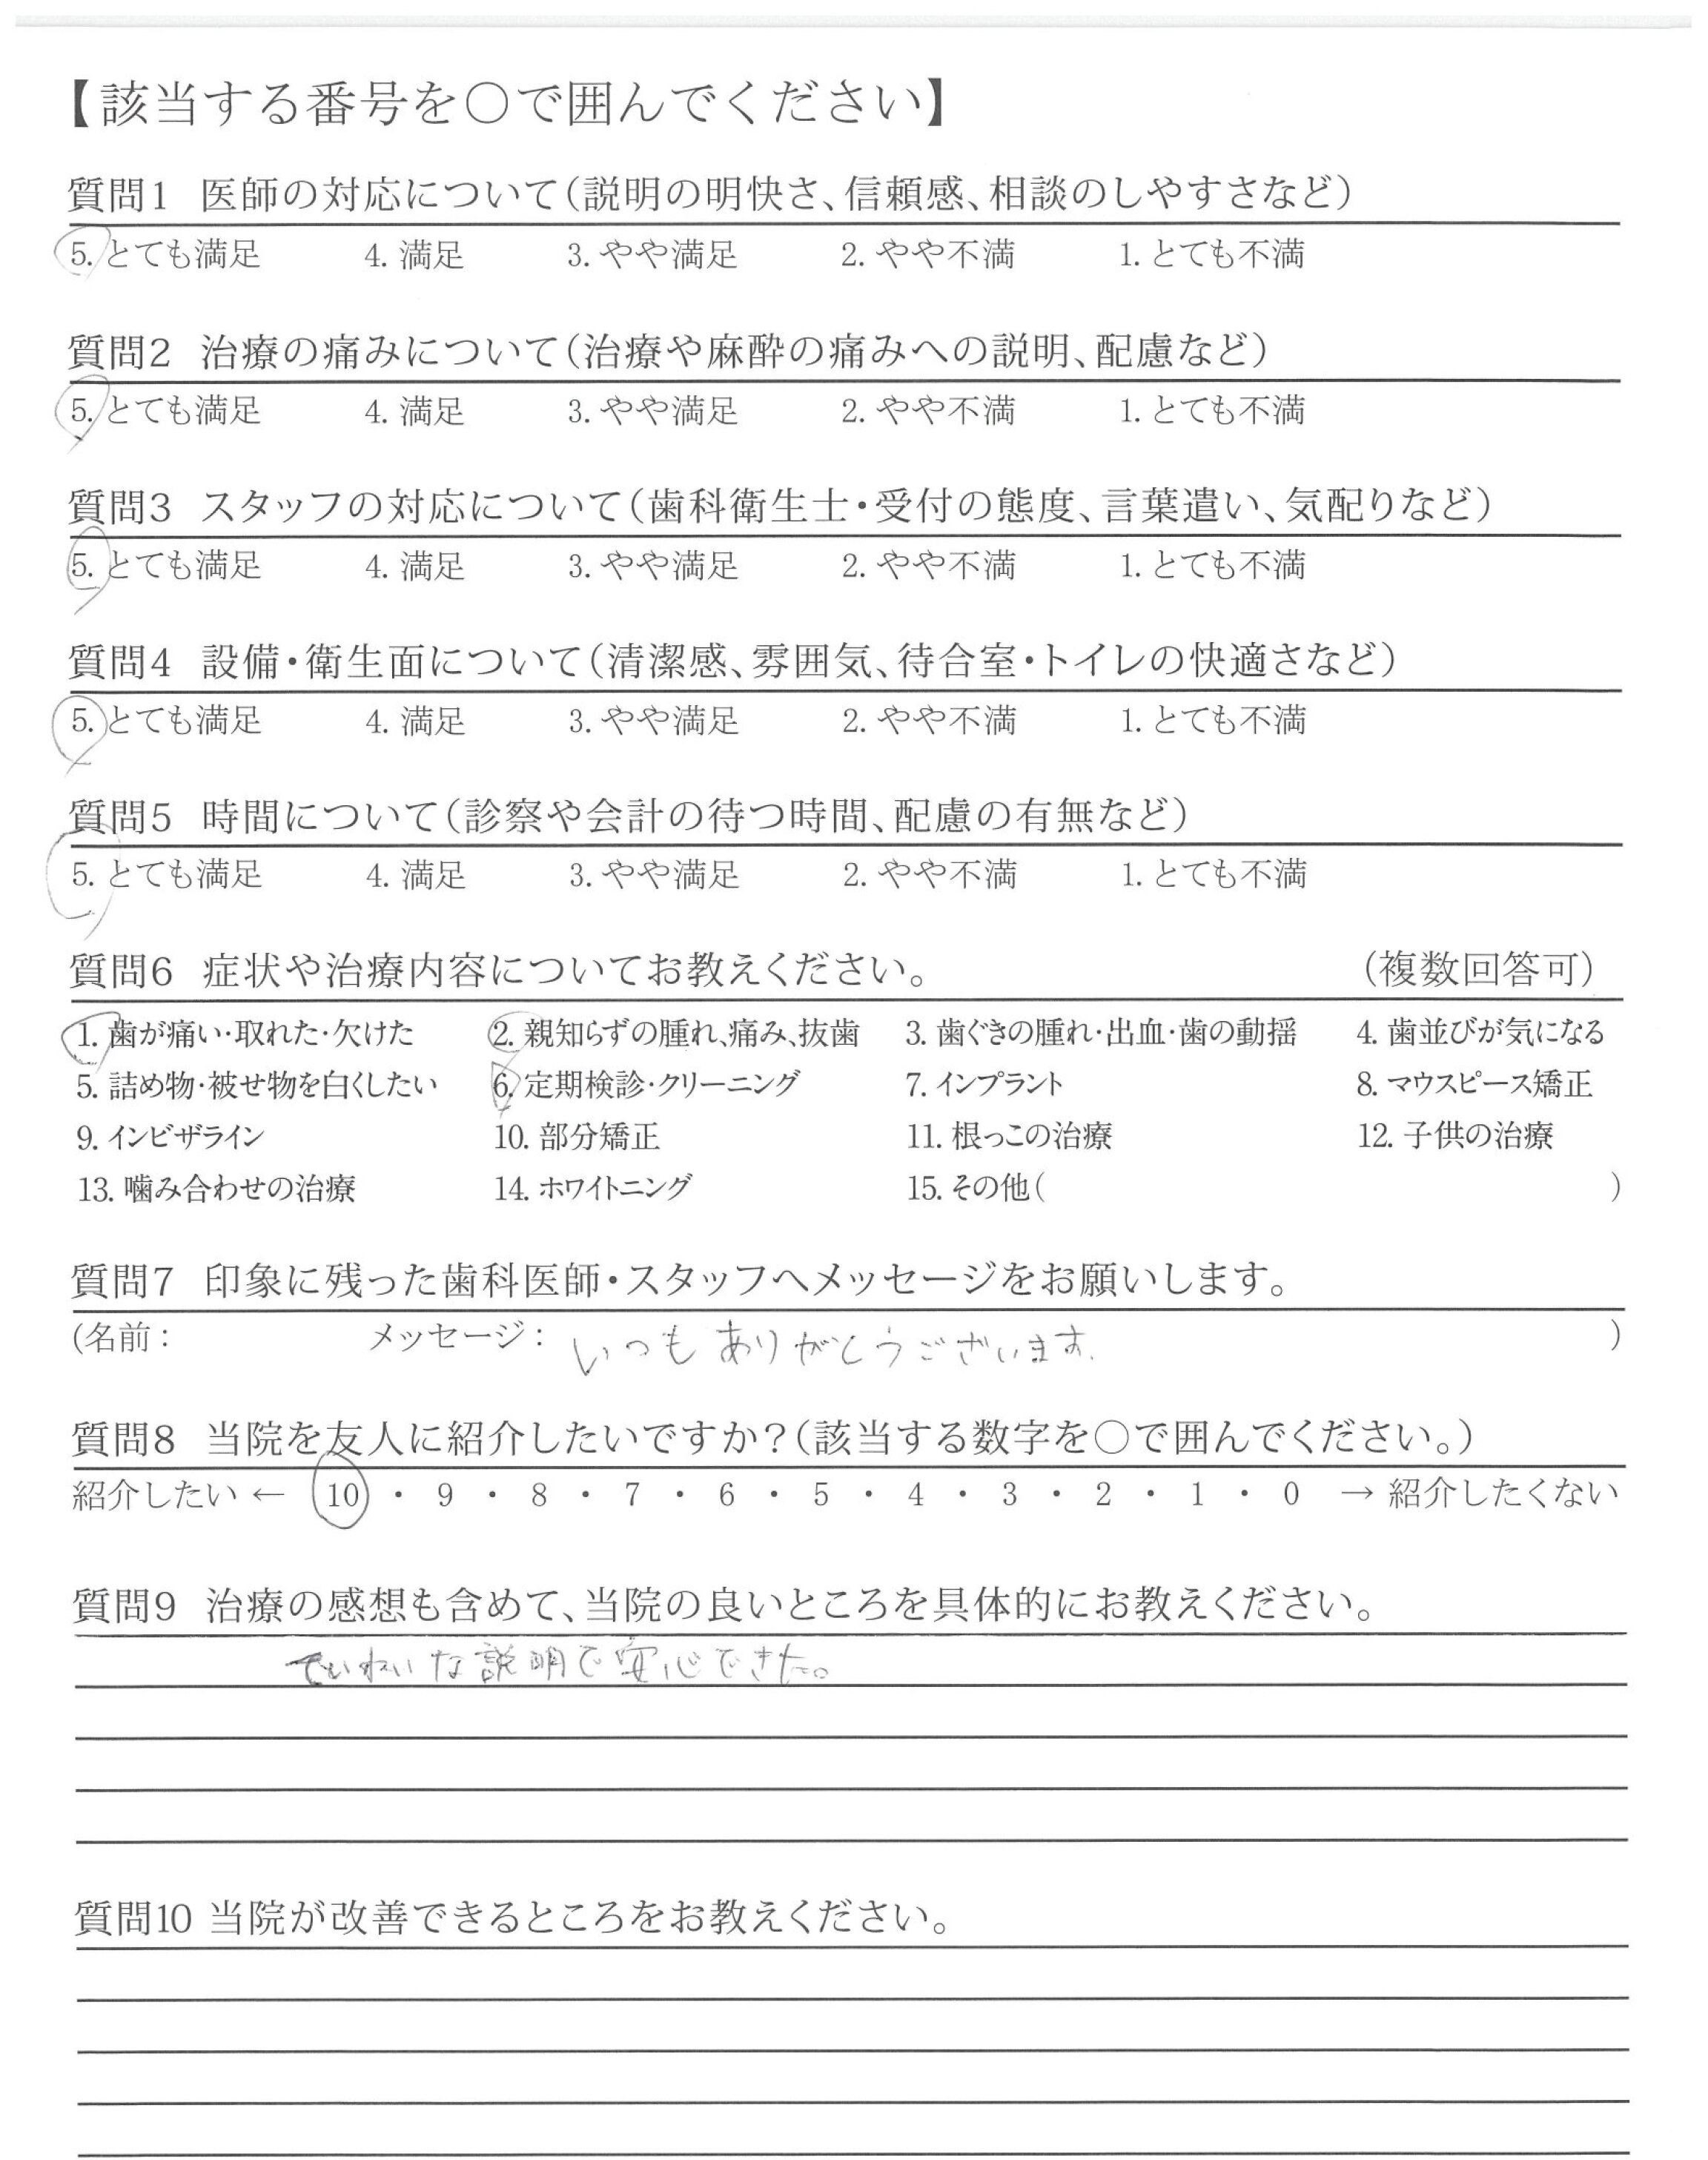 【該当する番号を〇で囲んでください】
質問1 医師の対応について(説明の明快さ、信頼感、相談のしやすさなど)
5. とても満足 4. 満足 3. やや満足 2. やや不満 1. とても不満
質問2 治療の痛みについて(治療や麻酔の痛みへの説明、配慮など)
5. とても満足 4. 満足 3. やや満足 2. やや不満 1. とても不満
質問3 スタッフの対応について(歯科衛生士・受付の態度、言葉遣い、気配りなど)
5. とても満足 4. 満足 3. やや満足 2. やや不満 1. とても不満
質問4 設備・衛生面について(清潔感、雰囲気、待合室・トイレの快適さなど)
5. とても満足 4. 満足 3. やや満足 2. やや不満 1. とても不満
質問5 時間について(診察や会計の待つ時間、配慮の有無など)
5. とても満足 4. 満足 3. やや満足 2. やや不満 1. とても不満
質問6 症状や治療内容についてお教えください。 (複数回答可)
1. 歯が痛い・取れた・欠けた 2. 親知らずの腫れ、痛み、抜歯 3. 歯ぐきの腫れ・出血・歯の動揺 4. 歯並びが気になる
5. 詰め物・被せ物を白くしたい 6. 定期検診・クリーニング 7. インプラント 8. マウスピース矯正
9. インビザライン 10. 部分矯正 11. 根っこの治療 12. 子供の治療
13. 噛み合わせの治療 14. ホワイトニング 15. その他( )
質問7 印象に残った歯科医師・スタッフへメッセージをお願いします。
(名前: メッセージ: いつもありがとうございます. )
質問8 当院を友人に紹介したいですか?(該当する数字を〇で囲んでください。)
紹介したい ← 10 ・ 9 ・ 8 ・ 7 ・ 6 ・ 5 ・ 4 ・ 3 ・ 2 ・ 1 ・ 0 → 紹介したくない
質問9 治療の感想も含めて、当院の良いところを具体的にお教えください。
ていねいな説明で安心できた。
質問10 当院が改善できるところをお教えください。